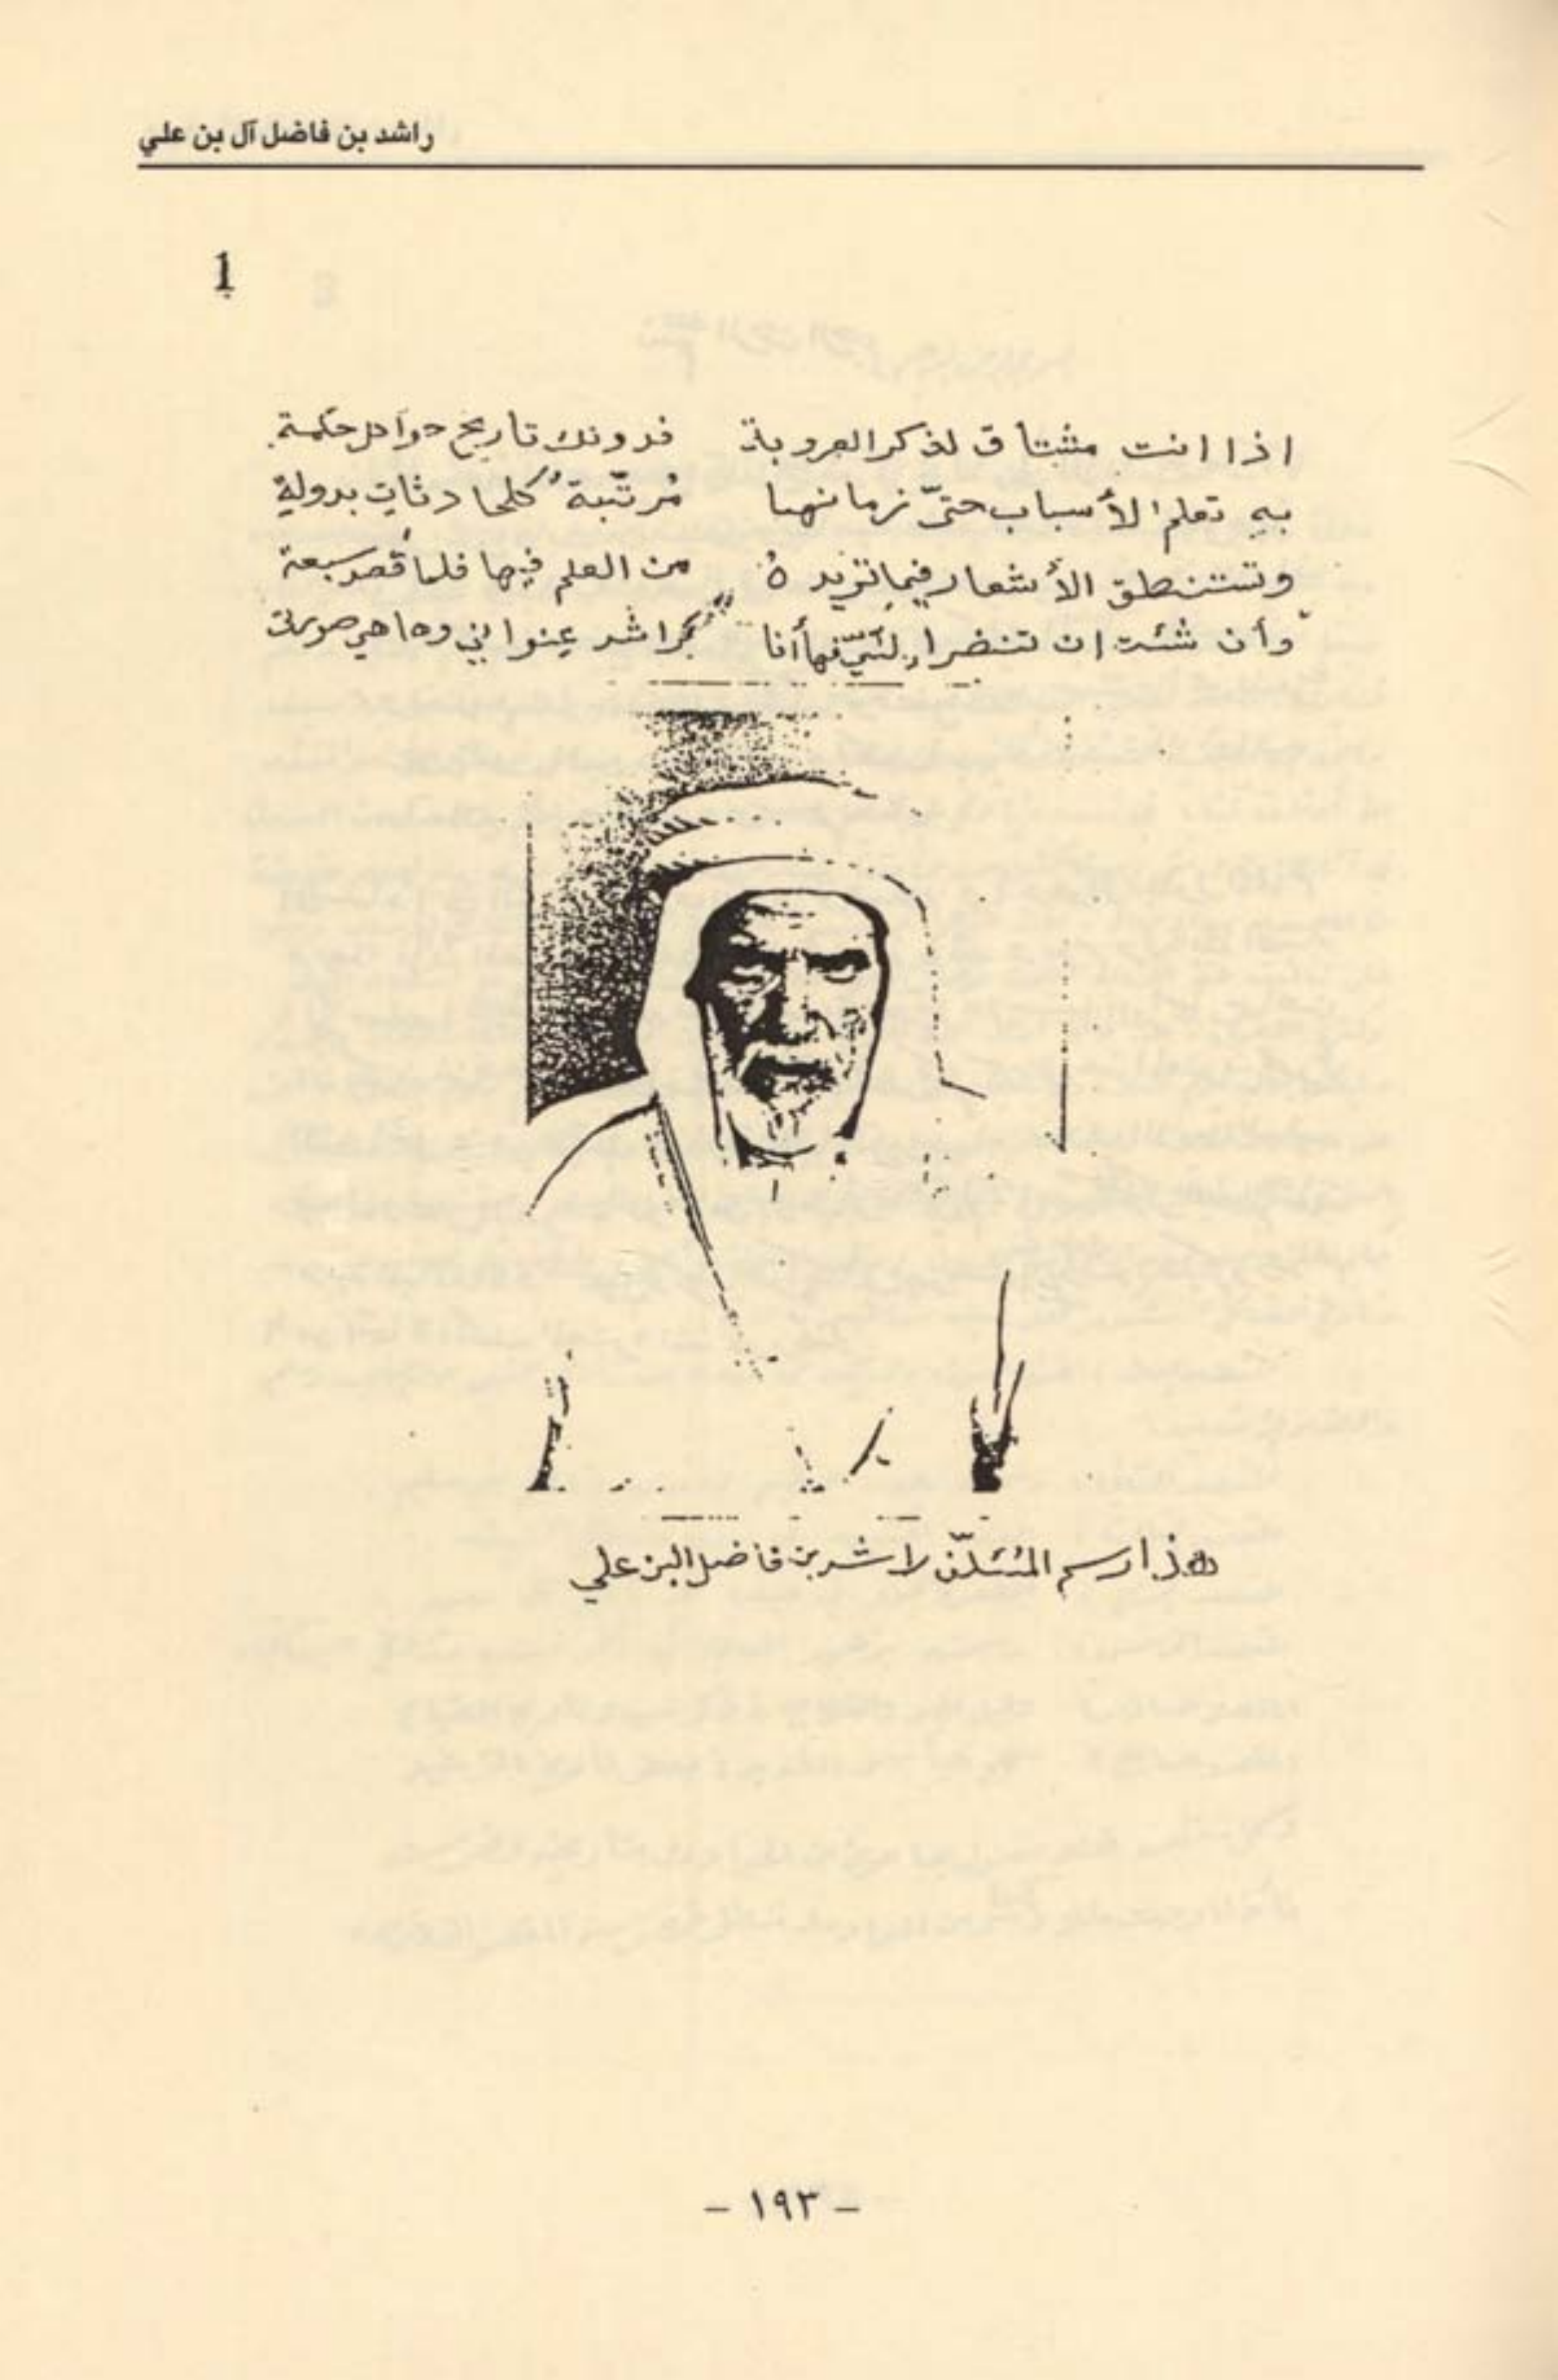 راشد بن فاضل آل بن علي
1
اذا انت مشتاق لذكر العروبة فدونك تاريخ حوا كل حكمة
به تعلم الأسباب حتىّ زمانها مُرتّبة كلحادثات بدولة
وتستنطق الأشعار فيما تريده من العلم فيها فلما قصر سبعة
وأن شئت ان تنضرا أنا راشد عنواني وها هي صورتي
هذا رسم المُئلّف راشد بن فاضل البن علي
- ١٩٣ -